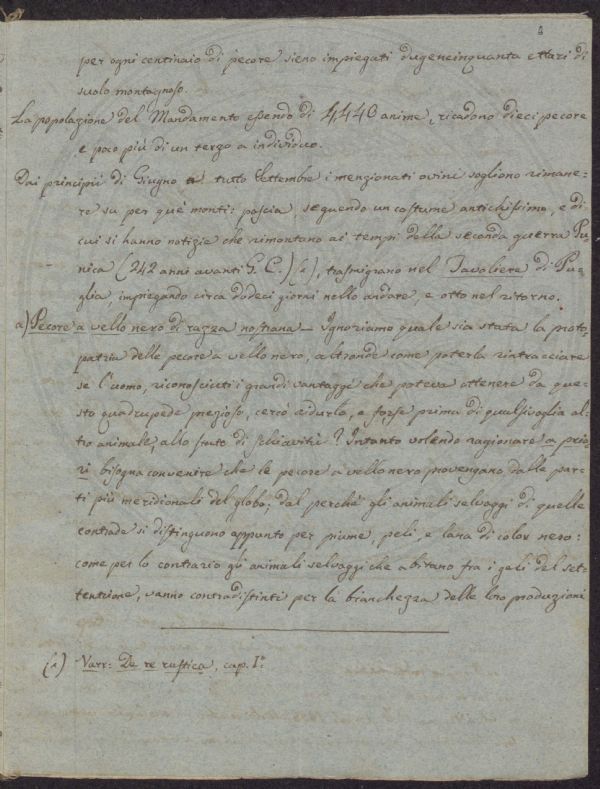 4
per ogni centinaio di pecore sieno impiegati dugencinquanta ettari di
suolo montagnoso.
La popolazione del Mandamento essendo di 4440 anime, ricadono dieci pecore
e poco più di un terzo a individuo.
Dai principii di Giugno a tutto Settembre i menzionati ovini sogliono rimane-
re su per que' monti: poscia seguendo un costume antichissimo, e di
cui si hanno notizie che rimontano ai tempi della seconda guerra Pu-
nica (242 anni avanti G. C.) (1), trasmigrano nel Tavoliere di Pu-
glia, impiegando circa dodeci giorni nello andare, e otto nel ritorno.
a) Pecore a vello nero di razza nostrana — Ignoriamo quale sia stata la proto-
patria delle pecore a vello nero, altronde come poterla rintracciare
se l'uomo, riconosciuti i grandi vantaggi che poteva ottenere da que-
sto quadrupede prezioso, cercò ridurlo, e forse prima di qualsivoglia al-
tro animale, allo stato di schiavitù? Intanto volendo ragionare a prio-
ri bisogna convenire che le pecore a vello nero provengano dalle par-
ti più meridionali del globo; dal perchè gli animali selvaggi di quelle
contrade si distinguono appunto per piume, peli, e lana di color nero:
come per lo contrario gli animali selvaggi che abitano fra i geli del set-
tentrione, vanno contradistinti per la bianchezza delle loro produzioni
(1) Varr: De re rustica, cap. I.º